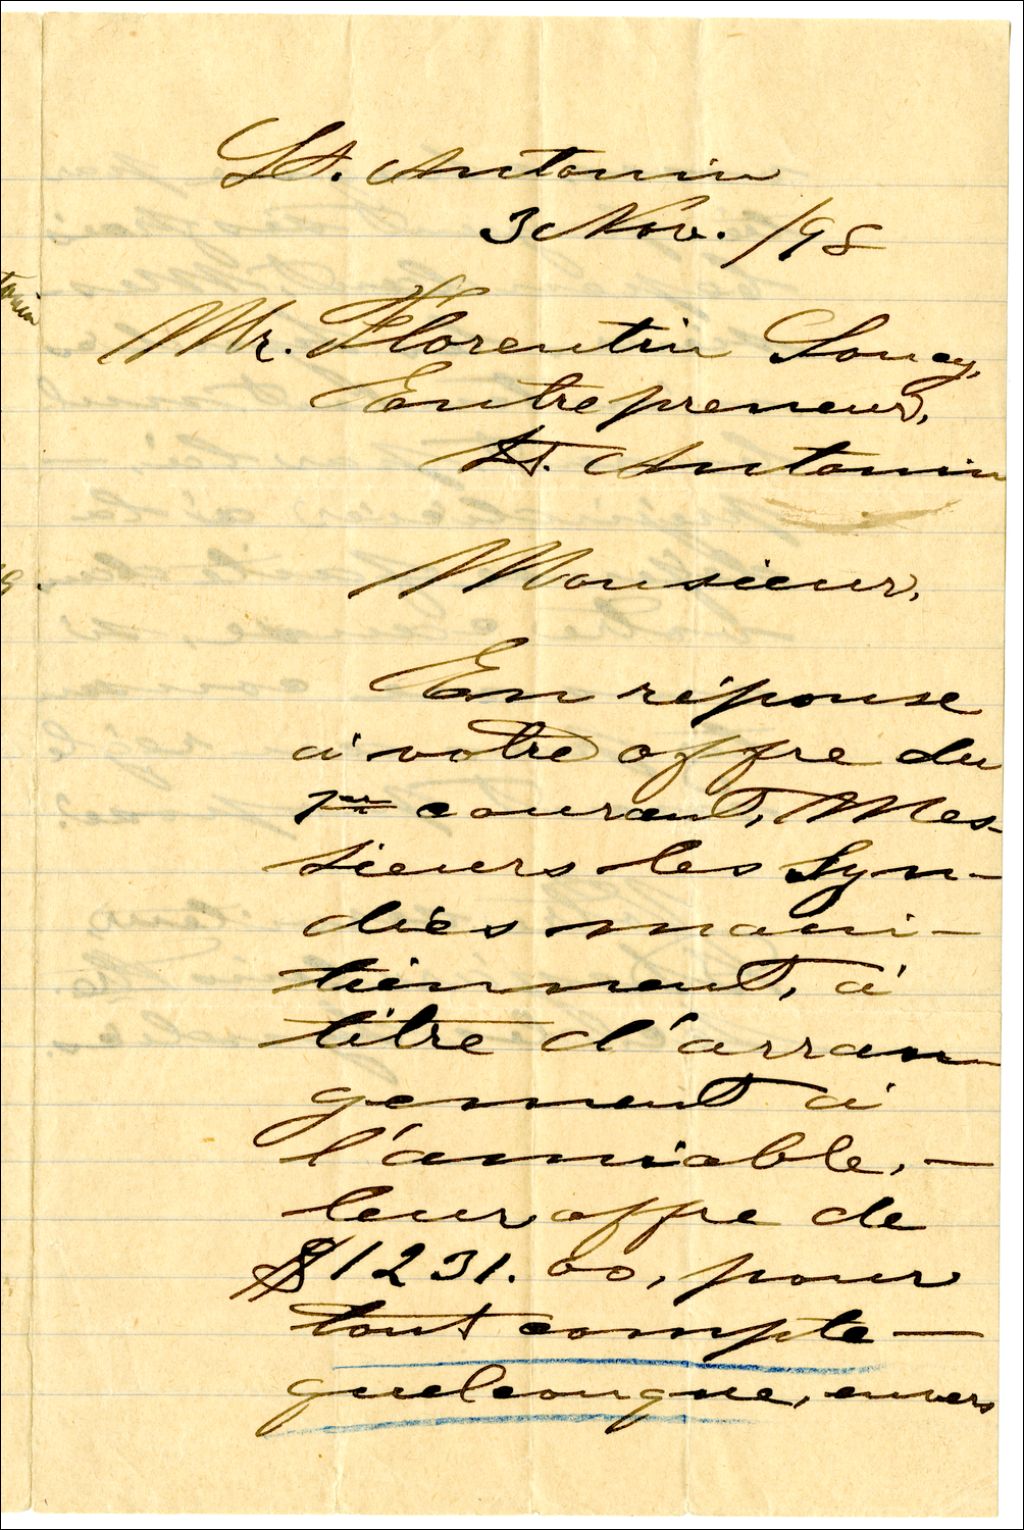 St. Antonin
3 Nov. /98
Mr. Florentin Soucy,
Entrepreneur,
St. Antonin
Monsieur,
En réponse
à votre offre du
1er courant, Mes-
sieurs les Syn-
dics main-
tiennent, à
titre d'arran-
gement à
l'amiable, —
leur offre de
$1231.00, pour
tout compte —
quelconque, envers